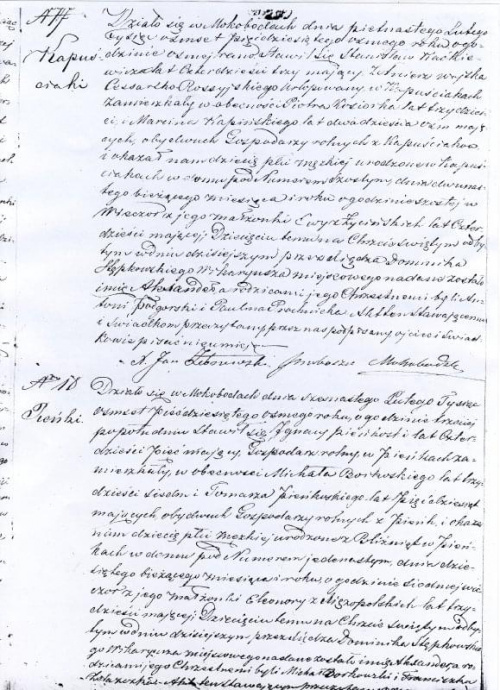 Nº 17 Działo się w Mokobodach dnia piętnastego Lutego
tysiąc osmset pięćdziesiątego osmego roku o go-
Kapuś dzinie osmej rano Stawił się Stanisław
ciaki lat Czterdzieści trzy mający Żołnierz wojska
Cesarsko Rossyjskiego Urlopowany w Kapuściakach
Zamieszkały w obecności Piotra Kosiorka lat trzydzie-
ści, i Marcina Kapińskiego lat dwadzieścia ośm mają-
cych, obydwóch Gospodarzy rolnych z Kapuściaków
i okazał nam dziecię płci męzkiej urodzone w Kapuś-
ciakach w domu pod Numerem szostym, dnia dwunas-
tego bieżącego miesiąca i roku o godzinie szóstej w
Wieczór z jego małżonki Ewy z Życińskich lat Czter-
dzieści mającej Dziecięciu temu na Chrzcie świętym odby-
tym w dniu dzisiejszym przez Xiędza Dominika
Stępkowskiego Wikaryusza miejscowego nadane zostało
imię Alexander a rodzicami jego Chrzestnemi byli An-
toni Półgorski i Paulina Akt ten stawającemu
i świadkom przeczytany przez nas podpisany ojciec i świad-
kowie pisać nieumieją
X. Jan
Nº 18 Działo się w Mokobodach dnia szesnastego Lutego Tysiąc
osmset pięćdziesiątego osmego roku, o godzinie trzeciej
Pieńki. po południu Stawił się Ignacy Pieńkoski lat Czter-
dzieści pięć mający Gospodarz rolny w Pieńkach za-
mieszkały, w obecności Michała Borkowskiego lat trzy-
dzieści siedm i Tomasza Pieńkowskiego lat Pięćdziesiąt
mających, obydwóch Gospodarzy rolnych z Pieniek, i okazał
nam dziecię płci męzkiej urodzone z Bliźniąt w Pień-
kach w domu pod Numerem jedenastym, dnia dzie-
siątego bieżącego miesiąca i roku, o godzinie siódmej wie-
czór z jego małżonki Eleonory z lat trzy-
dzieści mającej Dziecięciu temu na Chrzcie świętym odby-
tym w dniu dzisiejszym, przez Xiędza Dominika Stępkowskie-
go Wikaryusza miejscowego nadane zostało imię Alexander a ro-
dzicami jego Chrzestnemi byli Michał Borkowski i Franciszka
Akt ten stawającym